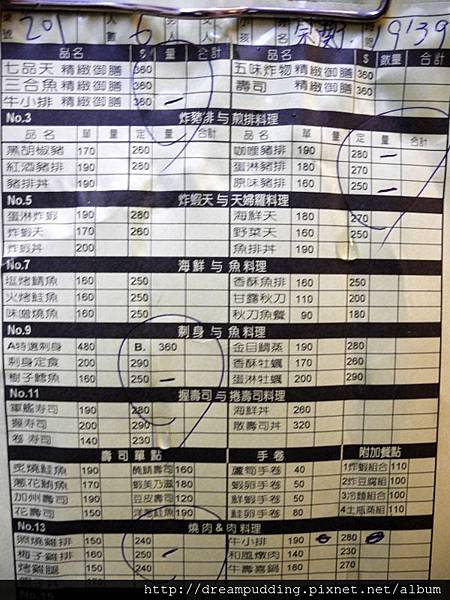 201 人數 6 9:39
品名 $ 量 合計 品名 $ 數量 合計
七品天 精緻御膳 360 五味炸物 精緻御膳 360
三合魚 精緻御膳 360 壽司 精緻御膳 360
牛小排 精緻御膳 360
No.3 炸豬排与煎排料理
品名 單 量 定 量 合計 品名 單 量 定 量 合計
黑胡椒豬 170 260 咖哩豬排 190 280
紅酒豬排 190 280 蛋淋豬排 180 270
豬排丼 190 原味豬排 160 250
No.5 炸蝦天与天婦羅料理
蛋淋炸蝦 190 280 海鮮天 180 270
炸蝦天 170 260 野菜天 160 250
炸蝦丼 200 魚排丼 190
No.7 海鮮与魚料理
塩烤鯖魚 160 250 香酥魚排 160 250
火烤鮭魚 160 250 甘露秋刀 110 200
味噌燒魚 160 250 秋刀魚餐 90 180
No.9 刺身与魚料理
A特選刺身 480 B. 360 金目鯛蒸 190 280
刺身定食 200 290 香酥牡蠣 170 260
樹子鱈魚 160 250 蛋淋牡蠣 200 290
No.11 握壽司与捲壽司料理
軍艦寿司 190 280 海鮮丼 260
握寿司 200 290 散壽司丼 320
卷寿司 140 230
壽司單點 手卷 附加餐點
炙燒鮭魚 190 160 蘆筍手卷 40 1炸蝦組合 110
蔥花鮪魚 170 蝦美乃滋 180 蝦卵手卷 50 2炸豆腐組 100
加州壽司 190 豆皮壽司 120 鮮蝦手卷 50 3冷麵組合 100
花壽司 150 190 鮭卵手卷 80 4土瓶蒸組 110
No.13 燒肉&肉料理
照燒雞排 150 240 牛小排 190 280
梅子雞排 160 250 和風燉肉 140 230
烤雞腿 150 240 牛壽喜鍋 180 270
http://dreampudding.pixnet.net/album